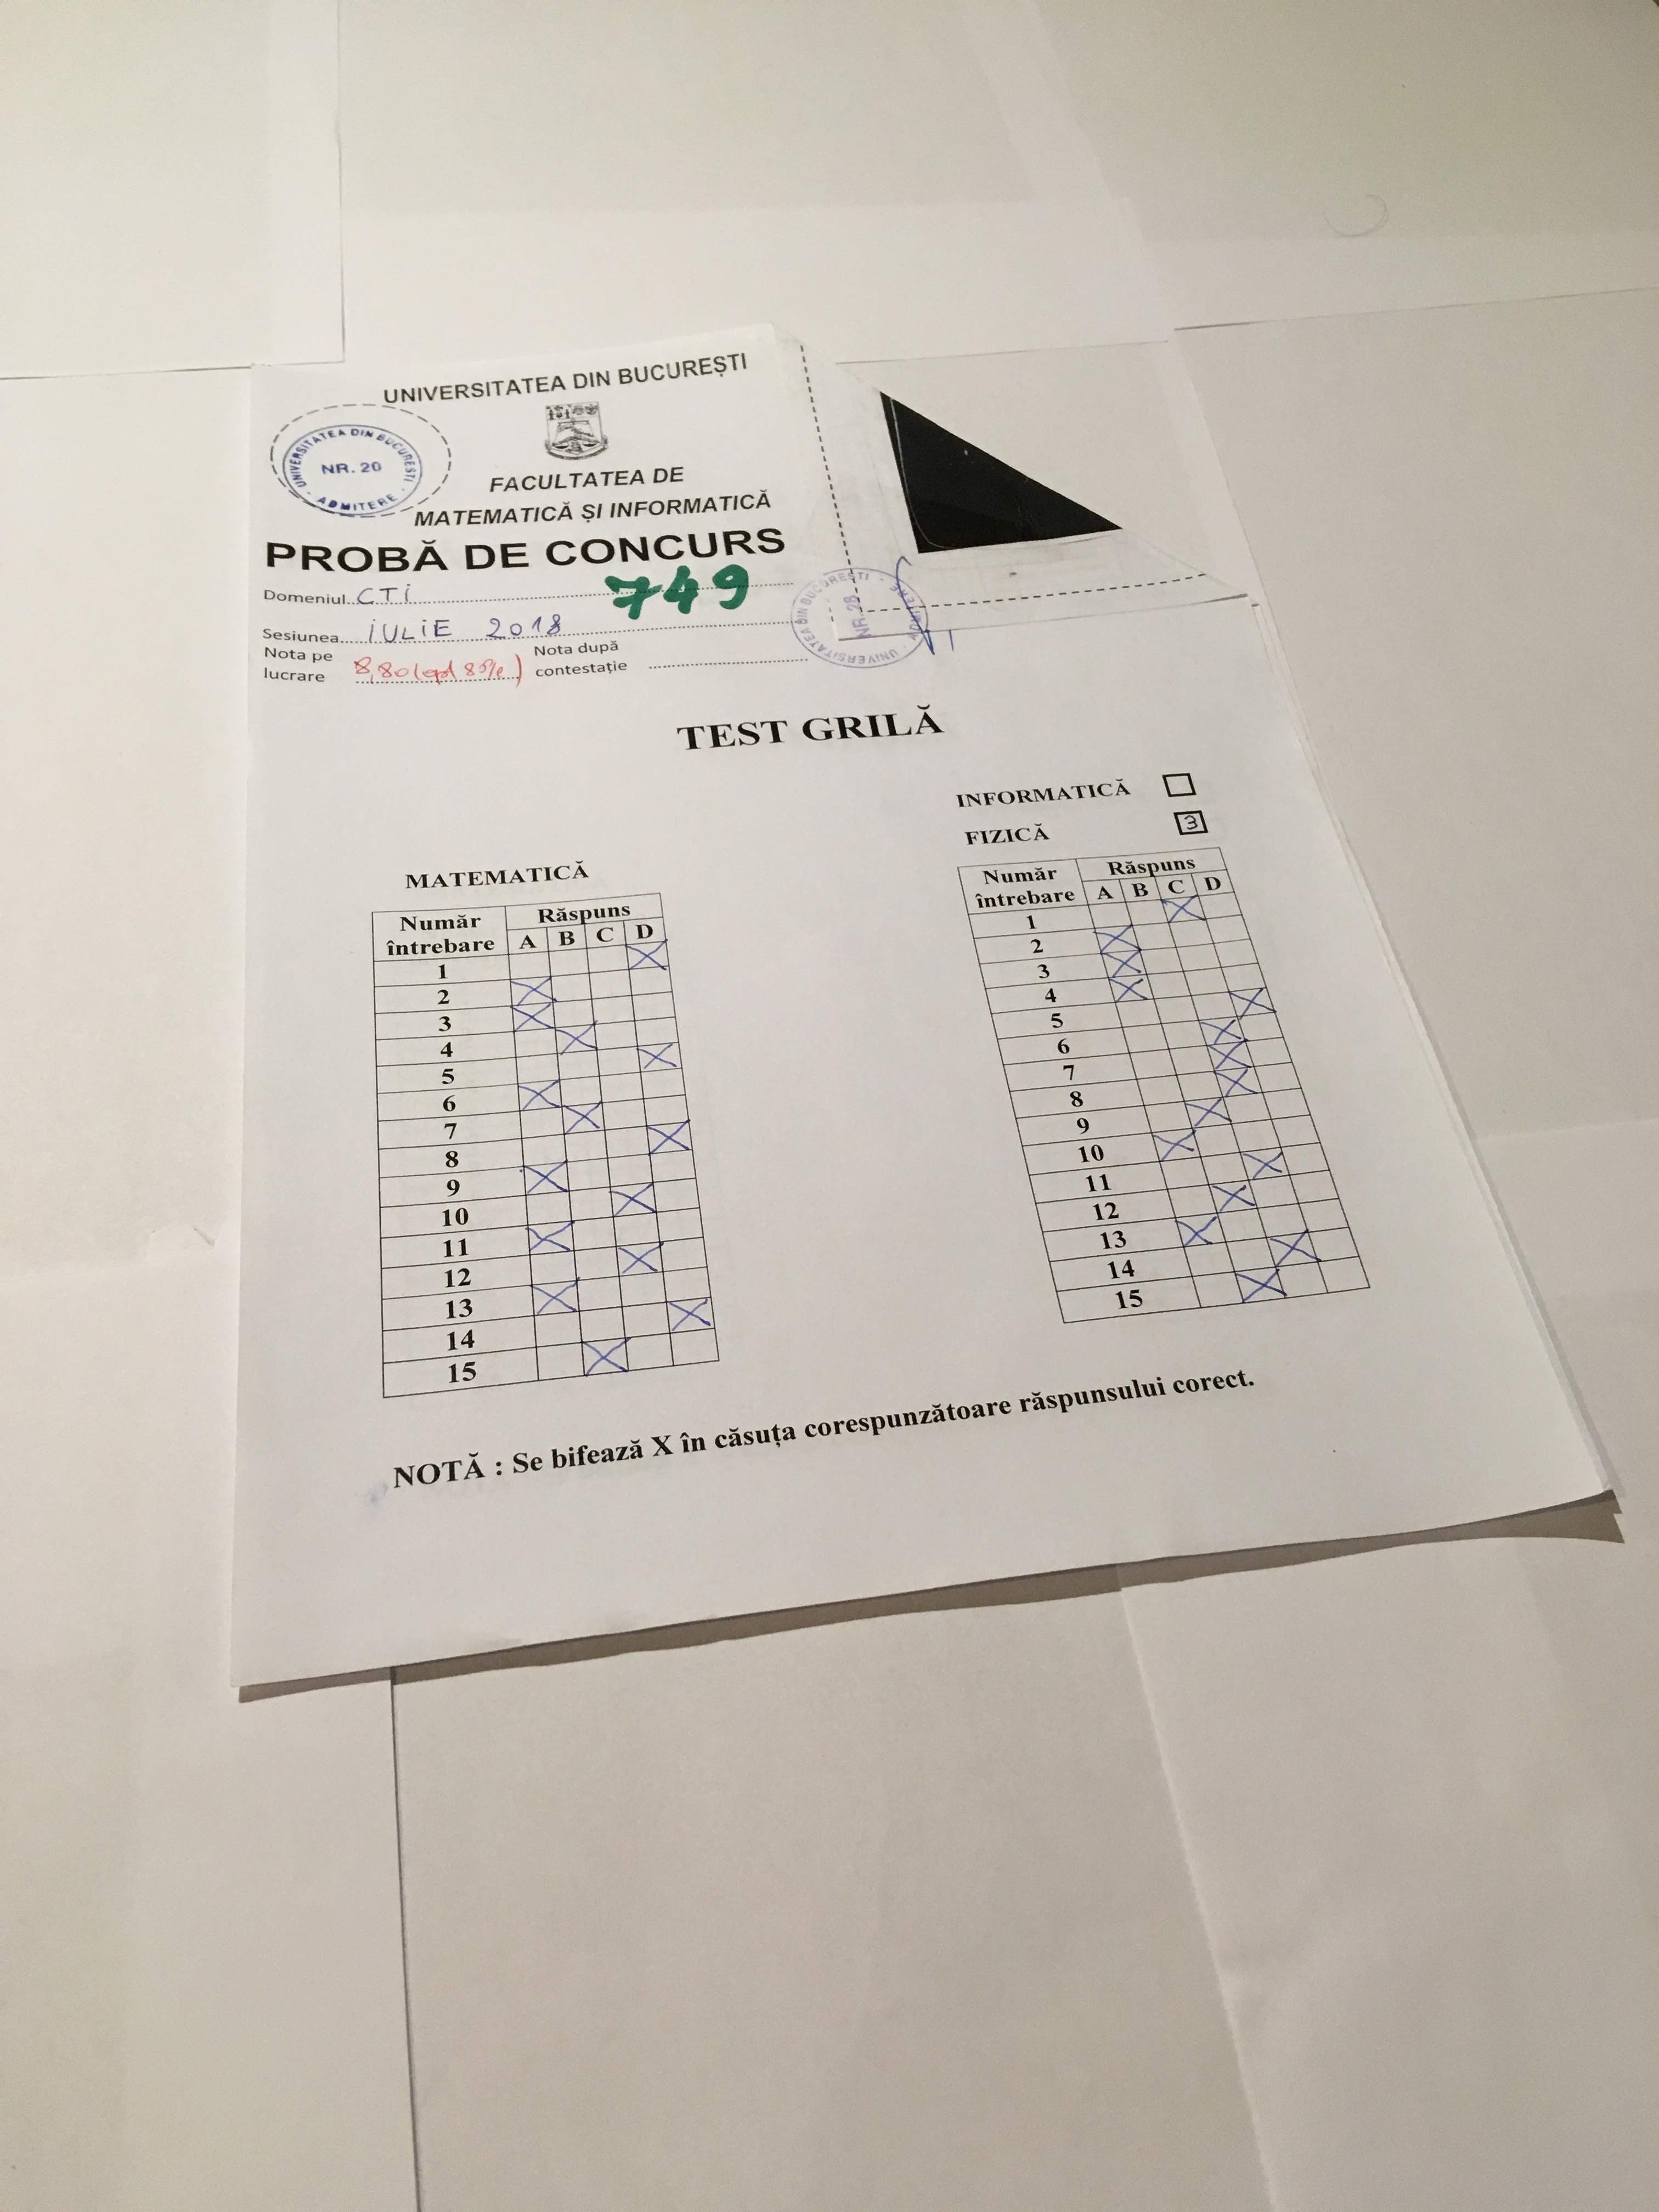 UNIVERSITATEA DIN BUCUREȘTI
UNIVERSITATEA DIN BUCUREȘTI
NR. 20
· ADMITERE ·
FACULTATEA DE
MATEMATICĂ ȘI INFORMATICĂ
PROBĂ DE CONCURS
749
Domeniul CTI
Sesiunea IULIE 2018
Nota pe lucrare 8,80
Nota după contestație
UNIVERSITATEA DIN BUCUREȘTI · ADMITERE ·
NR. 28
TEST GRILĂ
INFORMATICĂ
FIZICĂ 3
MATEMATICĂ
Număr întrebare Răspuns
A B C D
1 X
2 X
3 X
4 X
5 X
6 X
7 X
8 X
9 X
10 X
11 X
12 X
13 X
14 X
15 X
Număr întrebare Răspuns
A B C D
1 X
2 X
3 X
4 X
5 X
6 X
7 X
8 X
9 X
10 X
11 X
12 X
13 X
14 X
15 X
NOTĂ : Se bifează X în căsuța corespunzătoare răspunsului corect.